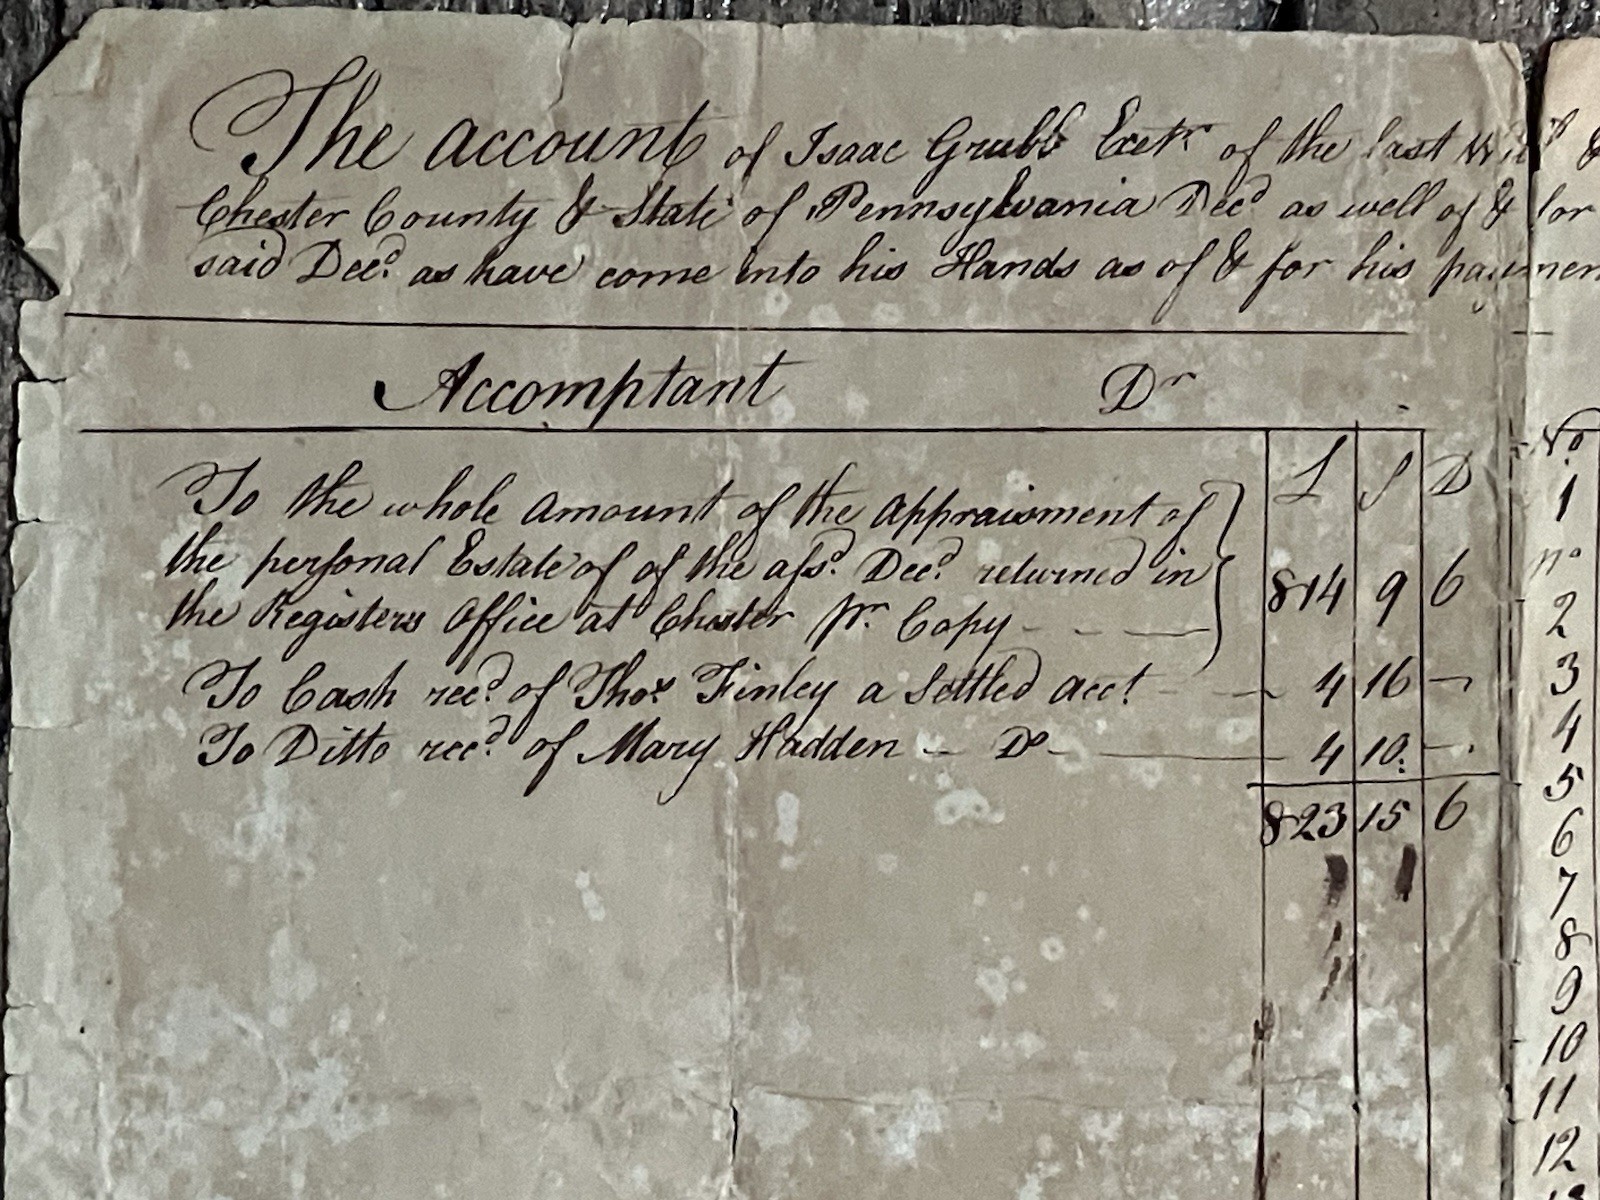 The account of Isaac Grubb Exetr of the last Will &
Chester County & State of Pennsylvania Decd as well of & for
said Decd as have come into his Hands as of & for his paymen
Accomptant Dr
L S D
To the whole amount of the appraisment of
the personal Estate of of the afsd. Decd. returned in 814 9 6
the Registers Office at Chester pr. Copy - - —
To Cash recd. of Thos. Finley a Settled acct. - — 4 16 -
To Ditto recd. of Mary Hadden - Do — 4 10: -
823 15 6
No.
1
no
2
3
4
5
6
7
8
9
10
11
12